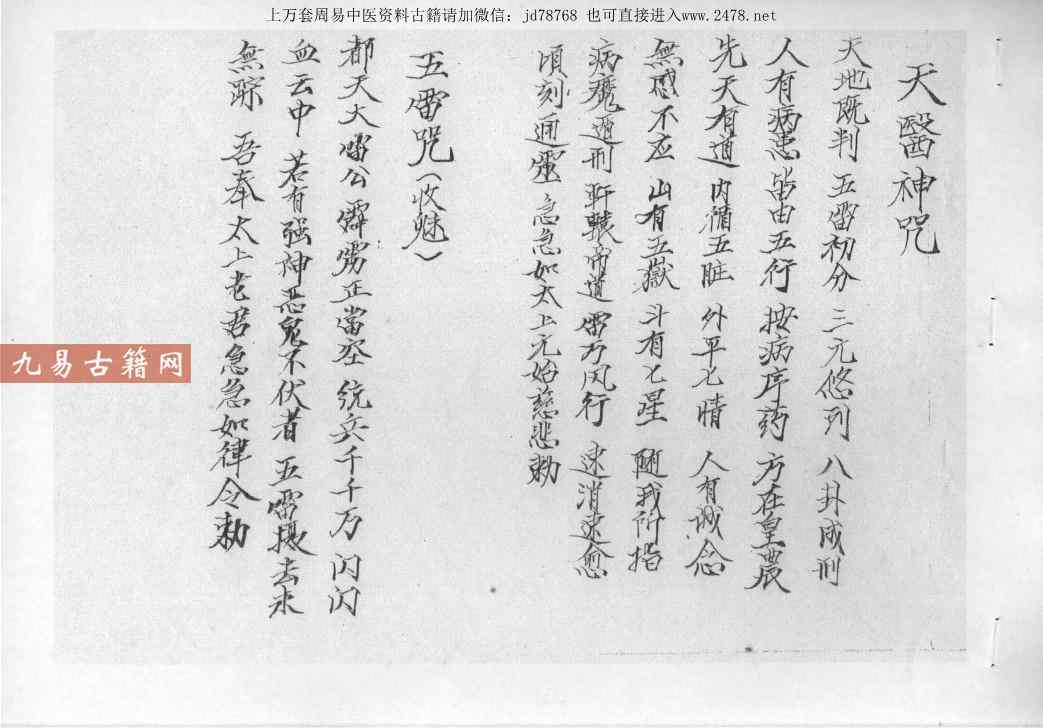 上万套周易中医资料古籍请加微信：jd78768 也可直接进入www.2478.net
天醫神咒
天地既判 五雷初分 三元悠列 八卦成刑
人有病患 皆由五行 按病序药 方在皇農
先天有道 内循五脏 外平七情 人有诚念
無感不应 山有五嶽 斗有七星 随我所指
病魔遁刑 軒轅帝道 雷万风行 速消速愈
頃刻通靈 急急如太上元始慈悲勅
五雷咒（收魅）
都天大雷公 霹雳正當空 统兵千千万 闪闪
血云中 若有强神恶鬼不伏者 五雷摄去永
無踪 吾奉太上老君急急如律令勅
九易古籍网